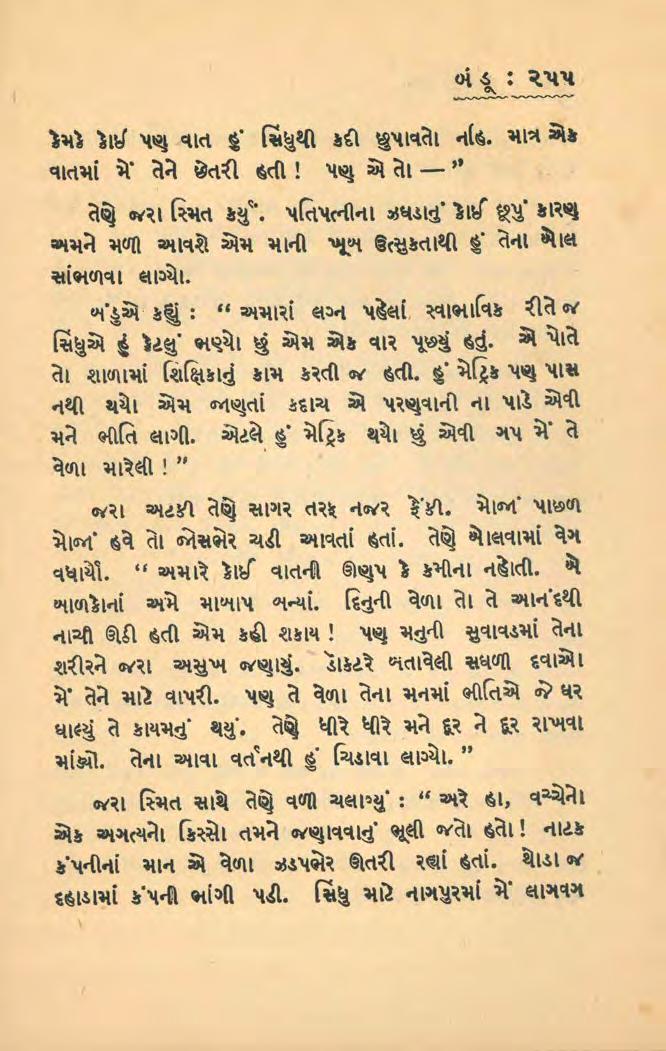 બંડૂ : ૨૫૫
કેમકે કોઈ પણ વાત હું સિંધુથી કદી છુપાવતો નહિ. માત્ર એક
વાતમાં મેં તેને છેતરી હતી ! પણ એ તો — ”
તેણે જરા સ્મિત કર્યું. પતિપત્નીના ઝઘડાનું કોઈ છૂપું કારણ
અમને મળી આવશે એમ માની ખૂબ ઉત્સુકતાથી હું તેના બોલ
સાંભળવા લાગ્યો.
બંડુએ કહ્યું : “ અમારાં લગ્ન પહેલાં સ્વાભાવિક રીતે જ
સિંધુએ હું કેટલું ભણ્યો છું એમ એક વાર પૂછ્યું હતું. એ પોતે
તો શાળામાં શિક્ષિકાનું કામ કરતી જ હતી. હું મેટ્રિક પણ પાસ
નથી થયો એમ જાણતાં કદાચ એ પરણવાની ના પાડે એવી
મને ભીતિ લાગી. એટલે હું મેટ્રિક થયો છું એવી ગપ મેં તે
વેળા મારેલી ! ”
જરા અટકી તેણે સાગર તરફ નજર ફેંકી. મોજાં પાછળ
મોજાં હવે તો જોસભેર ચડી આવતાં હતાં. તેણે બોલવામાં વેગ
વધાર્યો. “ અમારે કોઈ વાતની ઊણપ કે કમીના નહોતી. બે
બાળકોનાં અમે માબાપ બન્યાં. દિનુની વેળા તો તે આનંદથી
નાચી ઊઠી હતી એમ કહી શકાય ! પણ મનુની સુવાવડમાં તેના
શરીરને જરા અસુખ જણાયું. ડૉકટરે બતાવેલી સઘળી દવાઓ
મેં તેને માટે વાપરી. પણ તે વેળા તેના મનમાં ભીતિએ જે ઘર
ઘાલ્યું તે કાયમનું થયું. તેણે ધીરે ધીરે મને દૂર ને દૂર રાખવા
માંડ્યો. તેના આવા વર્તનથી હું ચિડાવા લાગ્યો. ”
જરા સ્મિત સાથે તેણે વળી ચલાવ્યું : “ અરે હા, વચ્ચેનો
એક અગત્યનો કિસ્સો તમને જણાવવાનું ભૂલી જતો હતો ! નાટક
કંપનીનાં માન એ વેળા ઝડપભેર ઊતરી રહ્યાં હતાં. થોડા જ
દહાડામાં કંપની ભાંગી પડી. સિંધુ માટે નાગપુરમાં મેં લાગવગ